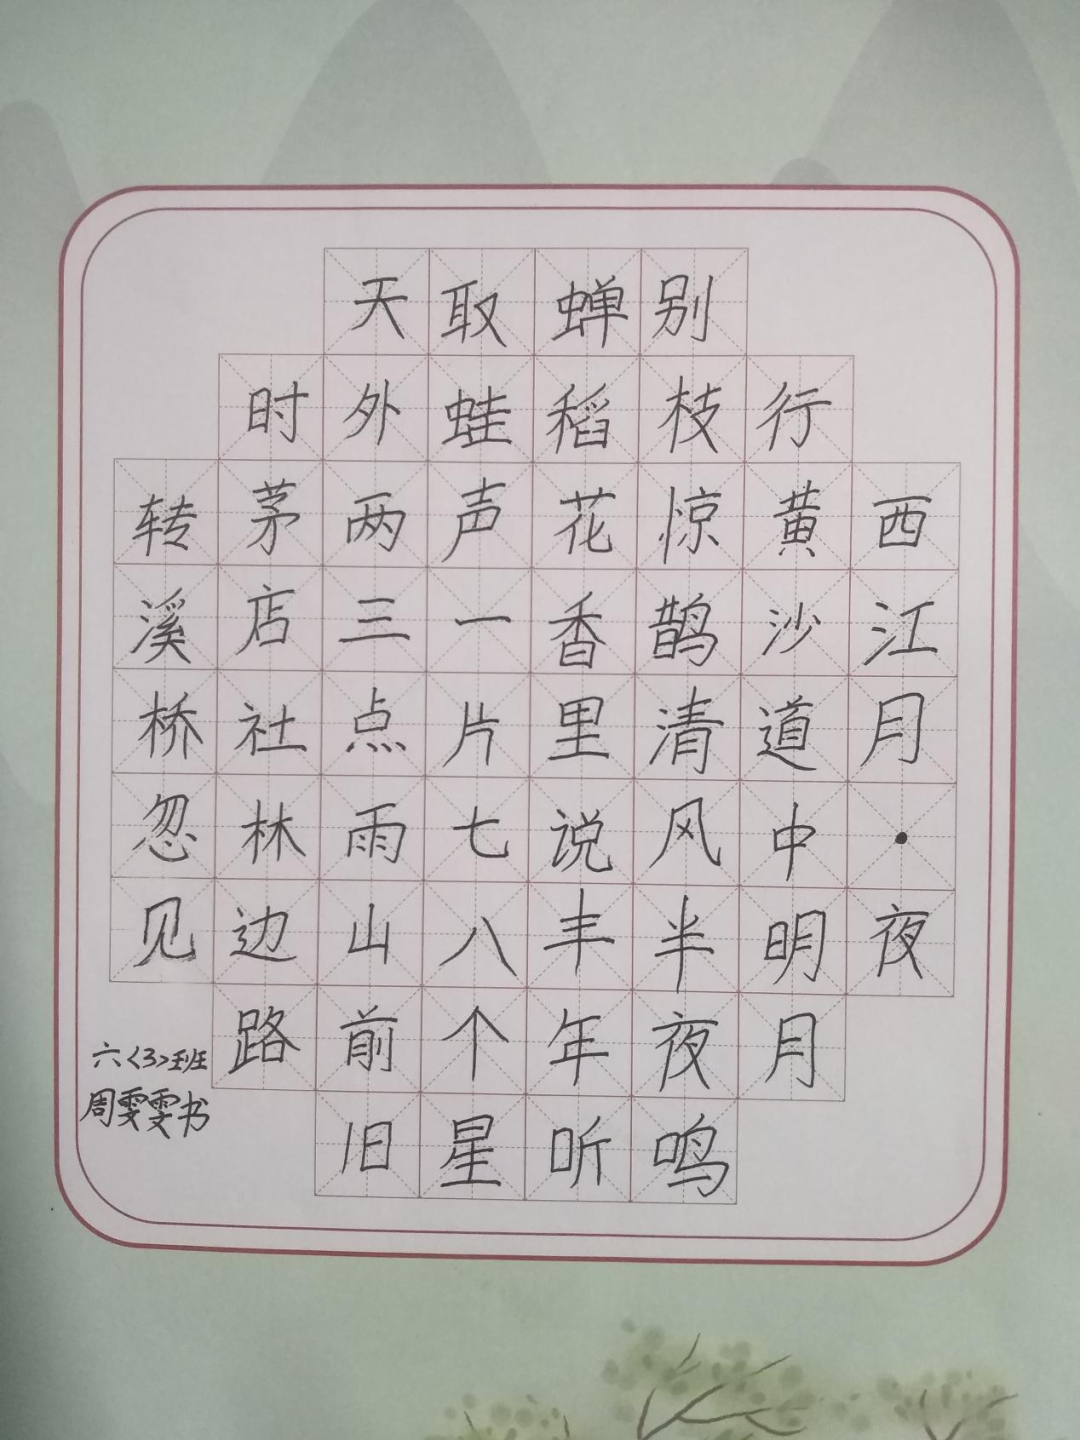 西江月·夜
行黄沙道中明月
别枝惊鹊清风半夜鸣
蝉稻花香里说丰年听
取蛙声一片七八个星
天外两三点雨山前旧
时茅店社林边路
转溪桥忽见
六<3>班
周雯雯书